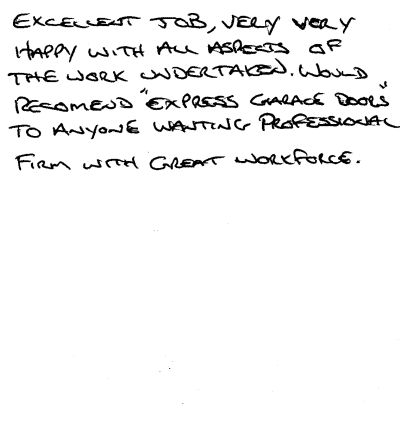 EXCELLENT JOB, VERY VERY
HAPPY WITH ALL ASPECTS OF
THE WORK UNDERTAKEN. WOULD
RECOMEND "EXPRESS GARAGE DOORS"
TO ANYONE WANTING PROFESSIONAL
FIRM WITH GREAT WORKFORCE.